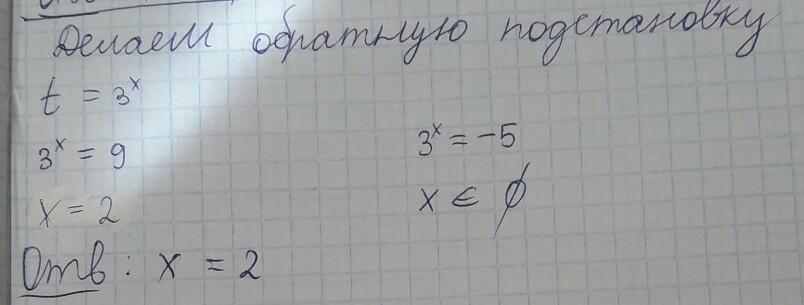 Делаем обратную подстановку
t = 3ˣ
3ˣ = 9
3ˣ = -5
x = 2
x ∈ ∅
Отв : x = 2